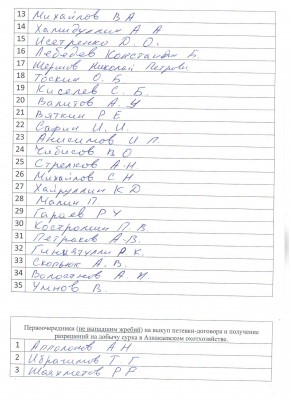 13 Михайлов В А
14 Хамидуллин А А
15 Исетренко Д. О.
16 Лебедев Константин Г.
17 Николай Петрови
18 Тоскин О. Б
19 Киселев С. Б.
20 Валитов А. У
21 Вяткин Р Е
22 Сафин И. И.
23 Анисимов И П.
24 Чибисов В О
25 Стрелков А Н
26 Михайлов С Н
27 Хайруллин К Д
28 Малин П.
29 Гараев Р У
30 Костромин П. В.
31 Петраков А. В.
32 Гиниятуллин Р. К.
33 Скорьюк А. В.
34 Волостнов А. И.
35 Умнов В.
Первоочередники (не выпавшим жребий) на выкуп путевки-договора и получение
разрешений на добычу сурка в Азнакаевском охотхозяйстве.
1 Апполонов А Н
2 Ибрагимов Т Г
3 Шаяхметов Р Р